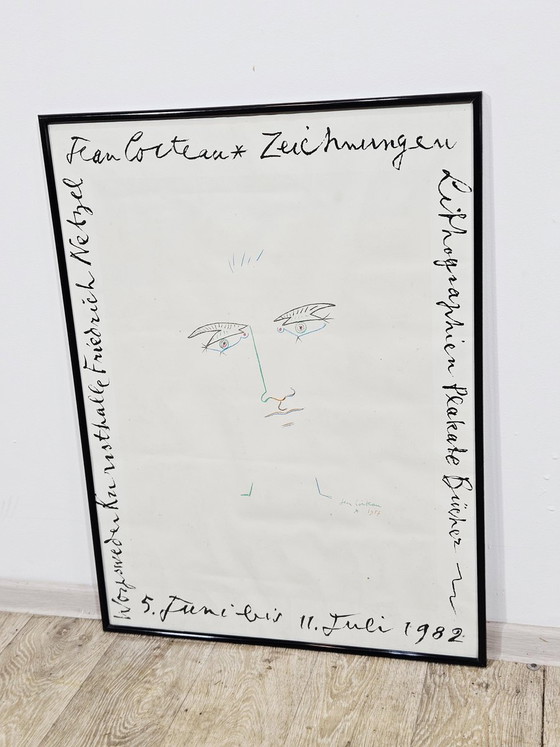 Jean Cocteau* Zeichnungen
Lithographien Plakate Bücher
5. Juni bis 11. Juli 1982
Worpsweder Kunsthalle Friedrich Netzel
Jean Cocteau